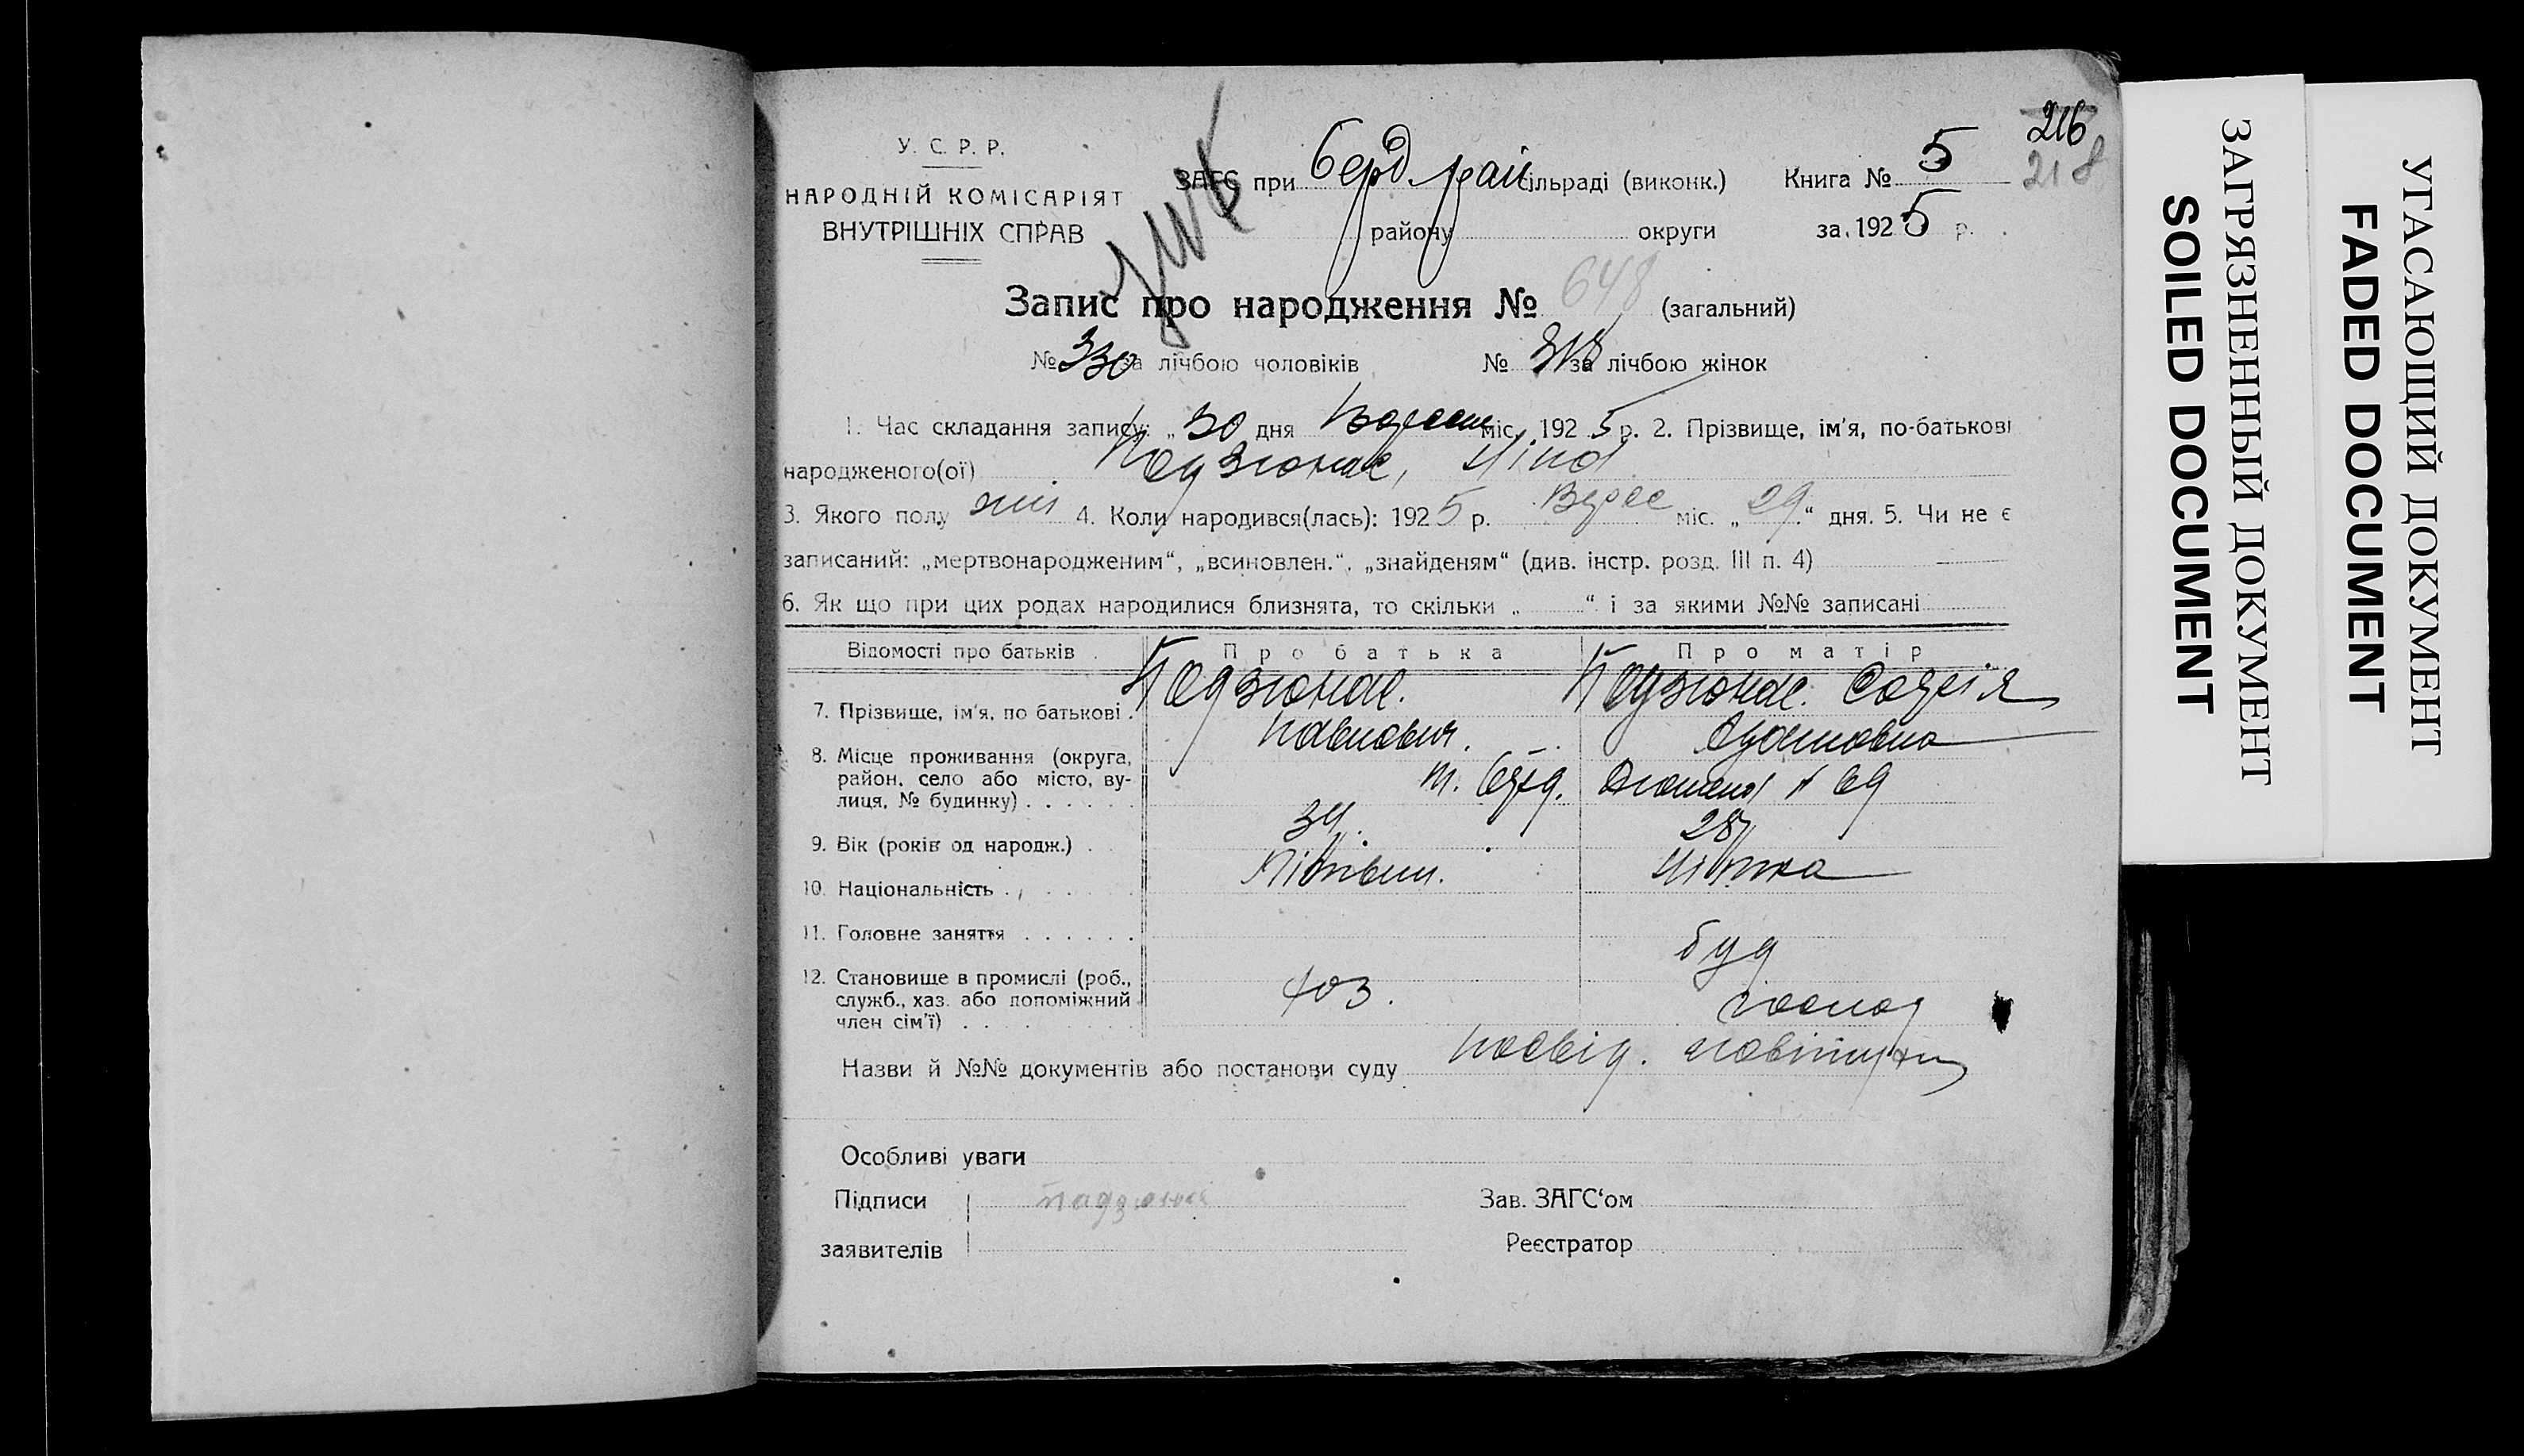 216
218
У. С. Р. Р.
НАРОДНІЙ КОМІСАРІЯТ
ВНУТРІШНІХ СПРАВ
ЗАГС при Берд. рай сільраді (виконк.) Книга № 5
району округи за 1925 р.
Запис про народження № 648 (загальний)
№ 330 за лічбою чоловіків № 318 за лічбою жінок
1. Час складання запису: „30 дня Вересн міс. 1925 р. 2. Прізвище, ім'я, по-батькові
народженого(ої) Ніна
3. Якого полу жін 4. Коли народився(лась): 1925 р. Верес міс. „29“ дня. 5. Чи не є
записаний: „мертвонародженим“, „всиновлен.“, „знайденям“ (див. інстр. розд. III п. 4)
6. Як що при цих родах народилися близнята, то скільки „ “ і за якими №№ записані
Відомості про батьків Про батька Про матір
7. Прізвище, ім'я, по батькові . Софія
8. Місце проживання (округа,
район, село або місто, ву-
лиця, № будинку) . . . . . . м. Берд. № 69
9. Вік (років од народж.) . 34. 28
10. Національність . .
11. Головне заняття . . . . . .
буд
12. Становище в промислі (роб.,
служб., хаз. або допоміжний
член сім'ї) . .
господ
Назви й №№ документів або постанови суду посвід.
Особливі уваги
Підписи
заявителів
Зав. ЗАГС‘ом
Реєстратор
ЗАГРЯЗНЕННЫЙ ДОКУМЕНТ
SOILED DOCUMENT
УГАСАЮЩИЙ ДОКУМЕНТ
FADED DOCUMENT